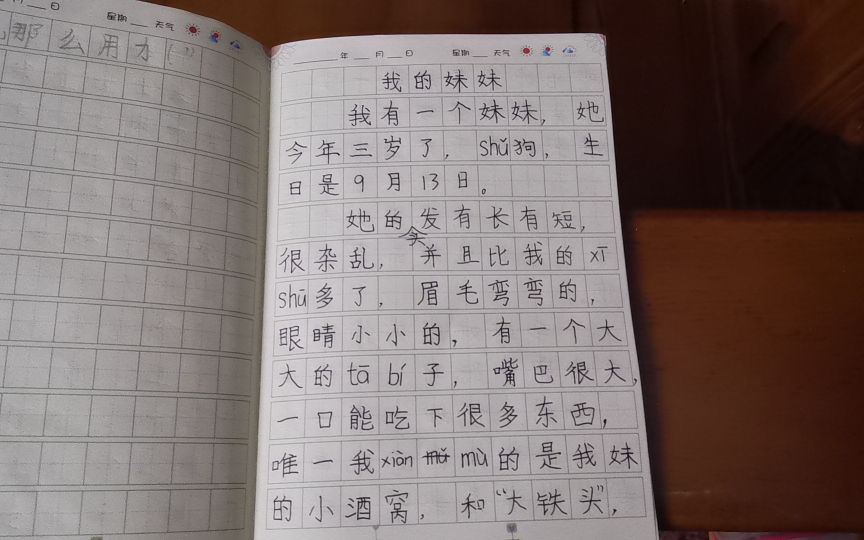 日 星期 天气
那么用力
年 月 日 星期 天气
我的妹妹
我有一个妹妹，她
今年三岁了，shǔ狗，生
日是9月13日。
她的头发有长有短，
很杂乱，并且比我的xī
shū多了，眉毛弯弯的，
眼睛小小的，有一个大
大的tā bí子，嘴巴很大，
一口能吃下很多东西，
唯一我xiàn mù的是我妹
的小酒窝，和“大铁头”，